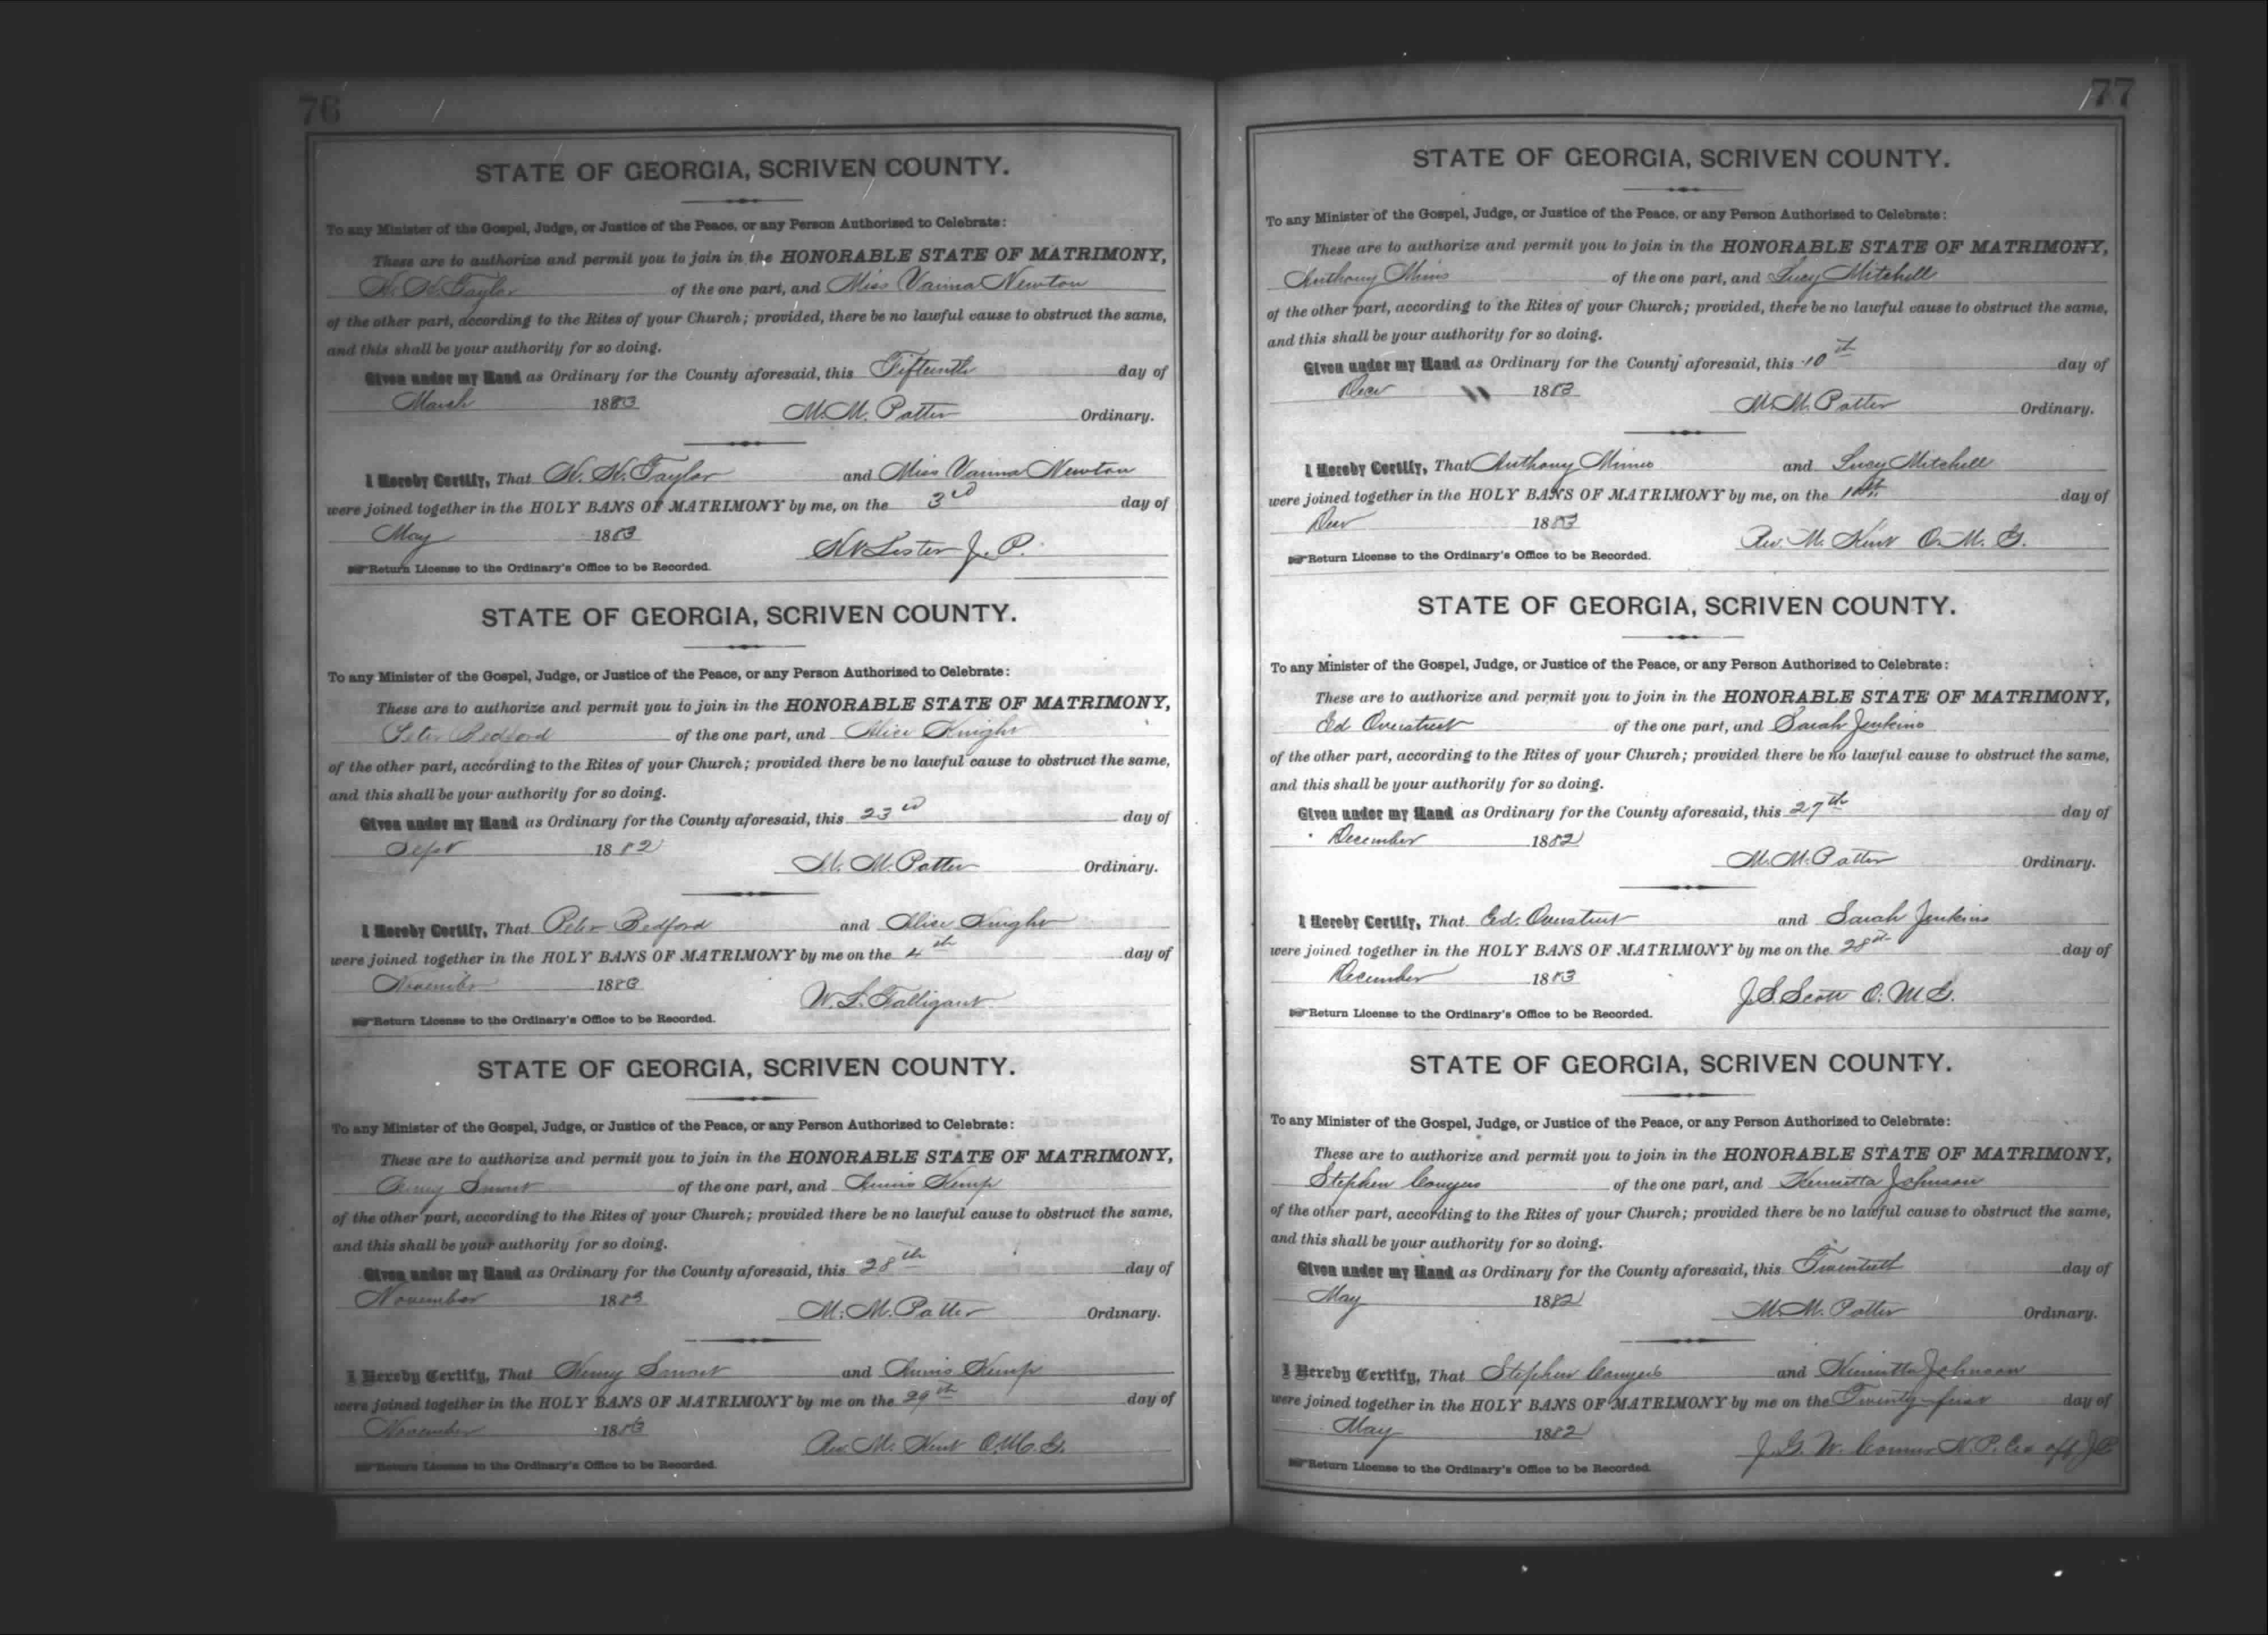 76
STATE OF GEORGIA, SCRIVEN COUNTY.
To any Minister of the Gospel, Judge, or Justice of the Peace, or any Person Authorized to Celebrate:
These are to authorize and permit you to join in the HONORABLE STATE OF MATRIMONY,
H. H. Taylor of the one part, and Miss Vanna Newton
of the other part, according to the Rites of your Church; provided, there be no lawful cause to obstruct the same,
and this shall be your authority for so doing.
Given under my Hand as Ordinary for the County aforesaid, this Fifteenth day of
March 1883 M. M. Potter Ordinary.
I Hereby Certify, That H. H. Taylor and Miss Vanna Newton
were joined together in the HOLY BANS OF MATRIMONY by me, on the 3rd day of
May 1883 Lester J. P.
Return License to the Ordinary's Office to be Recorded.
STATE OF GEORGIA, SCRIVEN COUNTY.
To any Minister of the Gospel, Judge, or Justice of the Peace, or any Person Authorized to Celebrate:
These are to authorize and permit you to join in the HONORABLE STATE OF MATRIMONY,
Peter Bedford of the one part, and Alice Knight
of the other part, according to the Rites of your Church; provided there be no lawful cause to obstruct the same,
and this shall be your authority for so doing.
Given under my Hand as Ordinary for the County aforesaid, this 23rd day of
Sept 1882 M. M. Potter Ordinary.
I Hereby Certify, That Peter Bedford and Alice Knight
were joined together in the HOLY BANS OF MATRIMONY by me on the 4th day of
November 1883 W. L. Falligant
Return License to the Ordinary's Office to be Recorded.
STATE OF GEORGIA, SCRIVEN COUNTY.
To any Minister of the Gospel, Judge, or Justice of the Peace, or any Person Authorized to Celebrate:
These are to authorize and permit you to join in the HONORABLE STATE OF MATRIMONY,
Henry Smart of the one part, and Annis Kemp
of the other part, according to the Rites of your Church; provided there be no lawful cause to obstruct the same,
and this shall be your authority for so doing.
Given under my Hand as Ordinary for the County aforesaid, this 28th day of
November 1883 M. M. Potter Ordinary.
I Hereby Certify, That Henry Smart and Annis Kemp
were joined together in the HOLY BANS OF MATRIMONY by me on the 29th day of
November 1883 Rev. M. Kent O. M. G.
Return License to the Ordinary's Office to be Recorded.
77
STATE OF GEORGIA, SCRIVEN COUNTY.
To any Minister of the Gospel, Judge, or Justice of the Peace, or any Person Authorized to Celebrate:
These are to authorize and permit you to join in the HONORABLE STATE OF MATRIMONY,
Anthony Mims of the one part, and Lucy Mitchell
of the other part, according to the Rites of your Church; provided, there be no lawful cause to obstruct the same,
and this shall be your authority for so doing.
Given under my Hand as Ordinary for the County aforesaid, this 10th day of
Decr 1883 M. M. Potter Ordinary.
I Hereby Certify, That Anthony Mims and Lucy Mitchell
were joined together in the HOLY BANS OF MATRIMONY by me, on the day of
Decr 1883 Rev. M. Kent O. M. G.
Return License to the Ordinary's Office to be Recorded.
STATE OF GEORGIA, SCRIVEN COUNTY.
To any Minister of the Gospel, Judge, or Justice of the Peace, or any Person Authorized to Celebrate:
These are to authorize and permit you to join in the HONORABLE STATE OF MATRIMONY,
Ed Overstreet of the one part, and Sarah Jenkins
of the other part, according to the Rites of your Church; provided there be no lawful cause to obstruct the same,
and this shall be your authority for so doing.
Given under my Hand as Ordinary for the County aforesaid, this 27th day of
December 1882 M. M. Potter Ordinary.
I Hereby Certify, That Ed. Overstreet and Sarah Jenkins
were joined together in the HOLY BANS OF MATRIMONY by me on the 28th day of
December 1883 J. S. Scott O. M. G.
Return License to the Ordinary's Office to be Recorded.
STATE OF GEORGIA, SCRIVEN COUNTY.
To any Minister of the Gospel, Judge, or Justice of the Peace, or any Person Authorized to Celebrate:
These are to authorize and permit you to join in the HONORABLE STATE OF MATRIMONY,
Stephen Conyers of the one part, and Henrietta Johnson
of the other part, according to the Rites of your Church; provided there be no lawful cause to obstruct the same,
and this shall be your authority for so doing.
Given under my Hand as Ordinary for the County aforesaid, this Twentieth day of
May 1882 M. M. Potter Ordinary.
I Hereby Certify, That Stephen Conyers and Henrietta Johnson
were joined together in the HOLY BANS OF MATRIMONY by me on the Twenty first day of
May 1882 J. G. W. Conner N. P. Ex off J P
Return License to the Ordinary's Office to be Recorded.